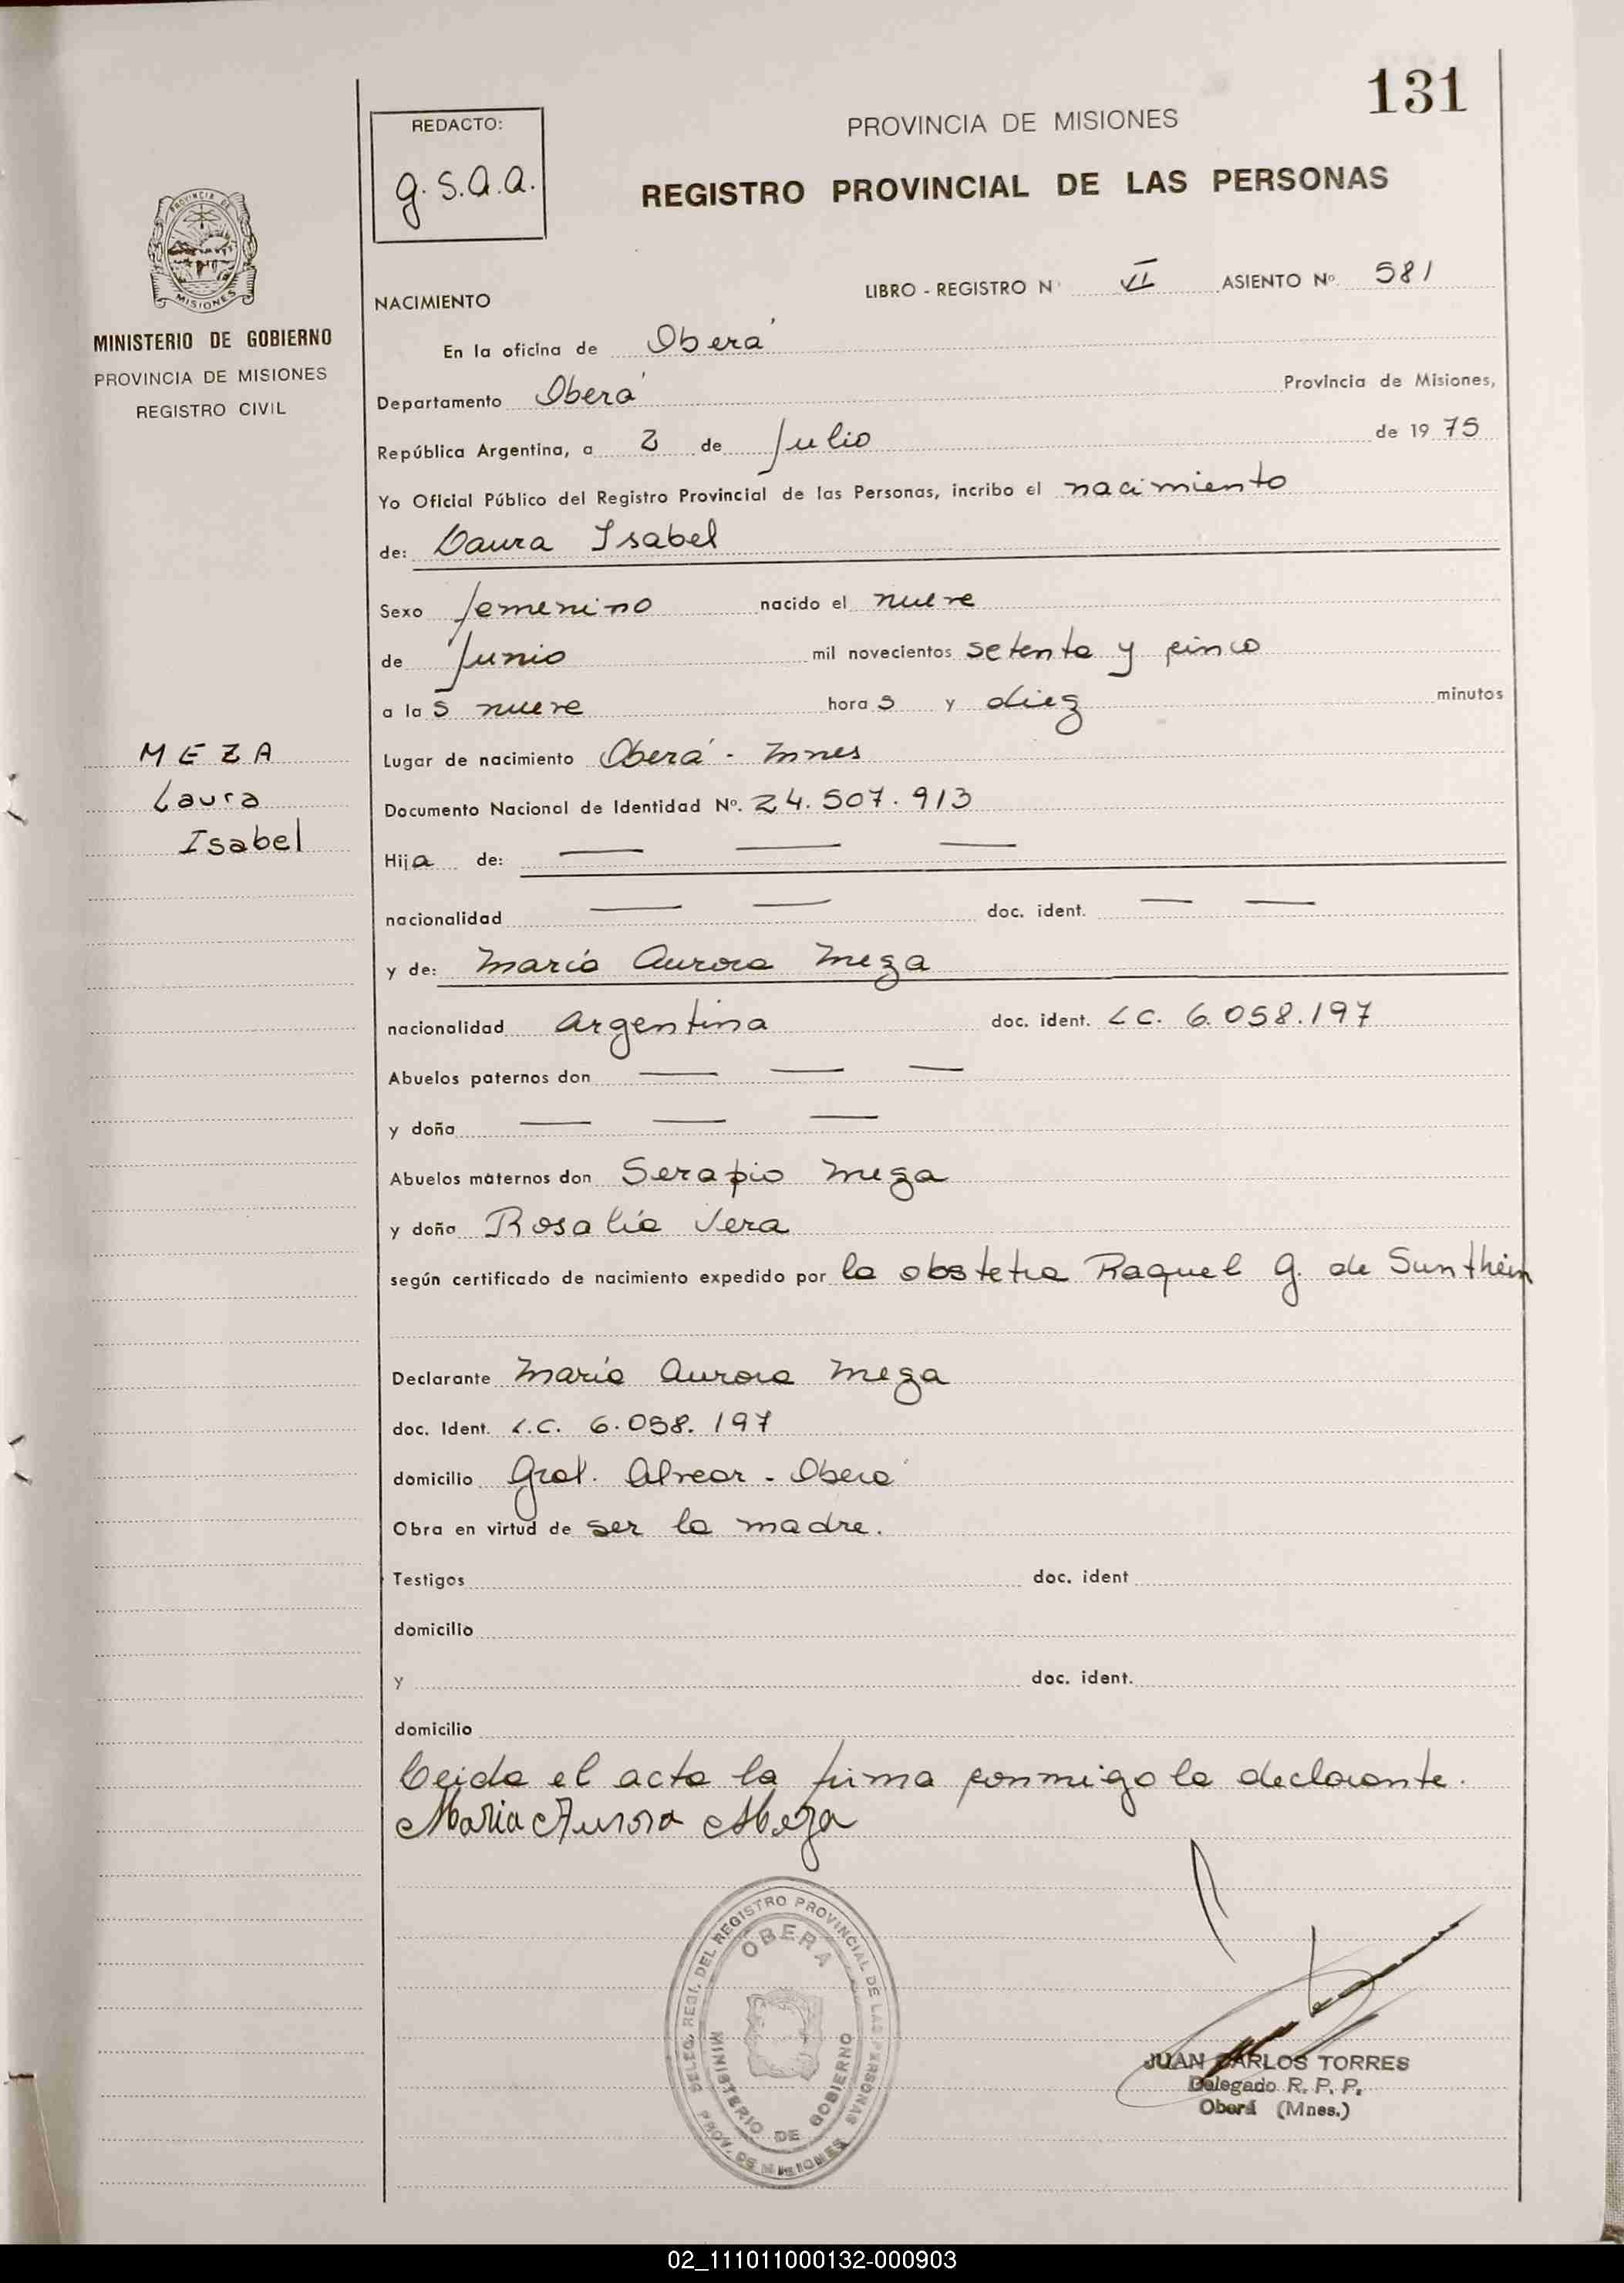 131
REDACTO:
g.s.a.a.
PROVINCIA DE MISIONES
REGISTRO PROVINCIAL DE LAS PERSONAS
MISIONES
MINISTERIO DE GOBIERNO
PROVINCIA DE MISIONES
REGISTRO CIVIL
LIBRO - REGISTRO N VI ASIENTO Nº 581
NACIMIENTO
En la oficina de Oberá
Departamento Oberá Provincia de Misiones,
República Argentina, a 2 de Julio de 19 75
Yo Oficial Público del Registro Provincial de las Personas, incribo el nacimiento
de: Laura Isabel
Sexo femenino nacido el nueve
de Junio mil novecientos setenta y cinco
a la s nueve hora s y diez minutos
MEZA
Laura
Isabel
Lugar de nacimiento Oberá - Mnes
Documento Nacional de Identidad Nº. 24.507.913
Hija de: — — —
nacionalidad — — doc. ident. — —
y de: María Aurora Meza
nacionalidad Argentina doc. ident. LC. 6.058.197
Abuelos paternos don — — —
y doña — — —
Abuelos maternos don Serapio Meza
y doña Rosalía Vera
según certificado de nacimiento expedido por la obstetra Raquel G. de Sunthein
Declarante María Aurora Meza
doc. Ident. L.C. 6.058.197
domicilio Gral. Alvear - Oberá
Obra en virtud de ser la madre.
Testigos doc. ident
domicilio
y doc. ident.
domicilio
Leida el acta la firma conmigo la declarante.
Maria Aurora Meza
DELEG. REGI. DEL REGISTRO PROVINCIAL DE LAS PERSONAS
OBERA
MINISTERIO DE GOBIERNO
PROV. DE MISIONES
JUAN CARLOS TORRES
Delegado R. P. P.
Oberá (Mnes.)
02_111011000132-000903